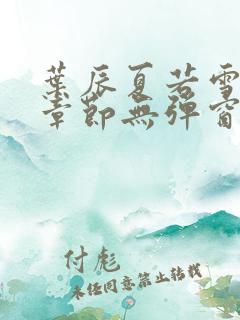 葉辰夏若雪
章節無彈窗
付彪
未经同意禁止转载